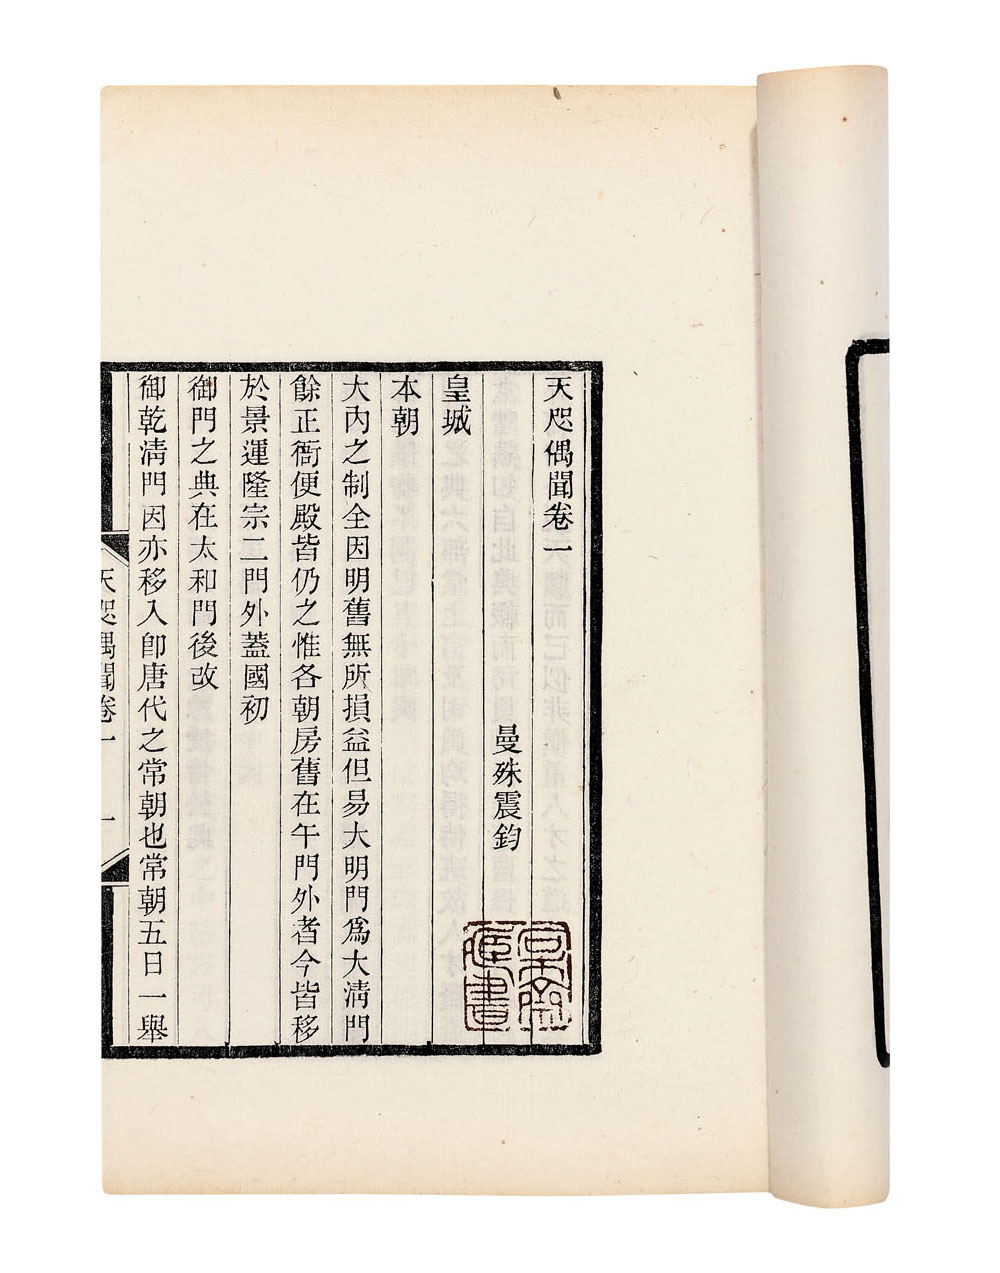 天咫偶聞卷一
曼殊震鈞
皇城
本朝
大內之制全因明舊無所損益但易大明門爲大清門
餘正衙便殿皆仍之惟各朝房舊在午門外者今皆移
於景運隆宗二門外蓋國初
御門之典在太和門後改
御乾清門因亦移入卽唐代之常朝也常朝五日一舉
天咫偶聞卷一
一